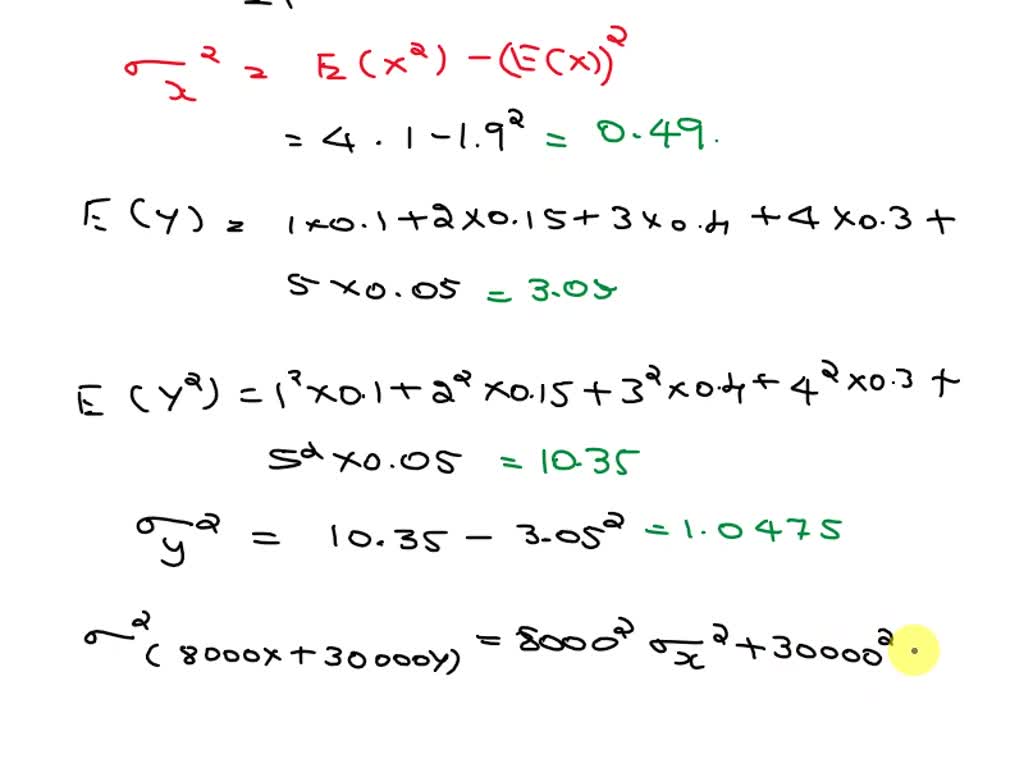 σₓ² = E(x²) - (E(x))²
= 4.1 - 1.9² = 0.49.
E(Y) = 1×0.1+2×0.15+3×0.4+4×0.3+
5×0.05 = 3.05
E(Y²) = 1²×0.1+2²×0.15+3²×0.4+4²×0.3+
5²×0.05 = 10.35
σ_y² = 10.35 - 3.05² = 1.0475
σ²(8000x+30000y) = 8000² σₓ² + 30000²